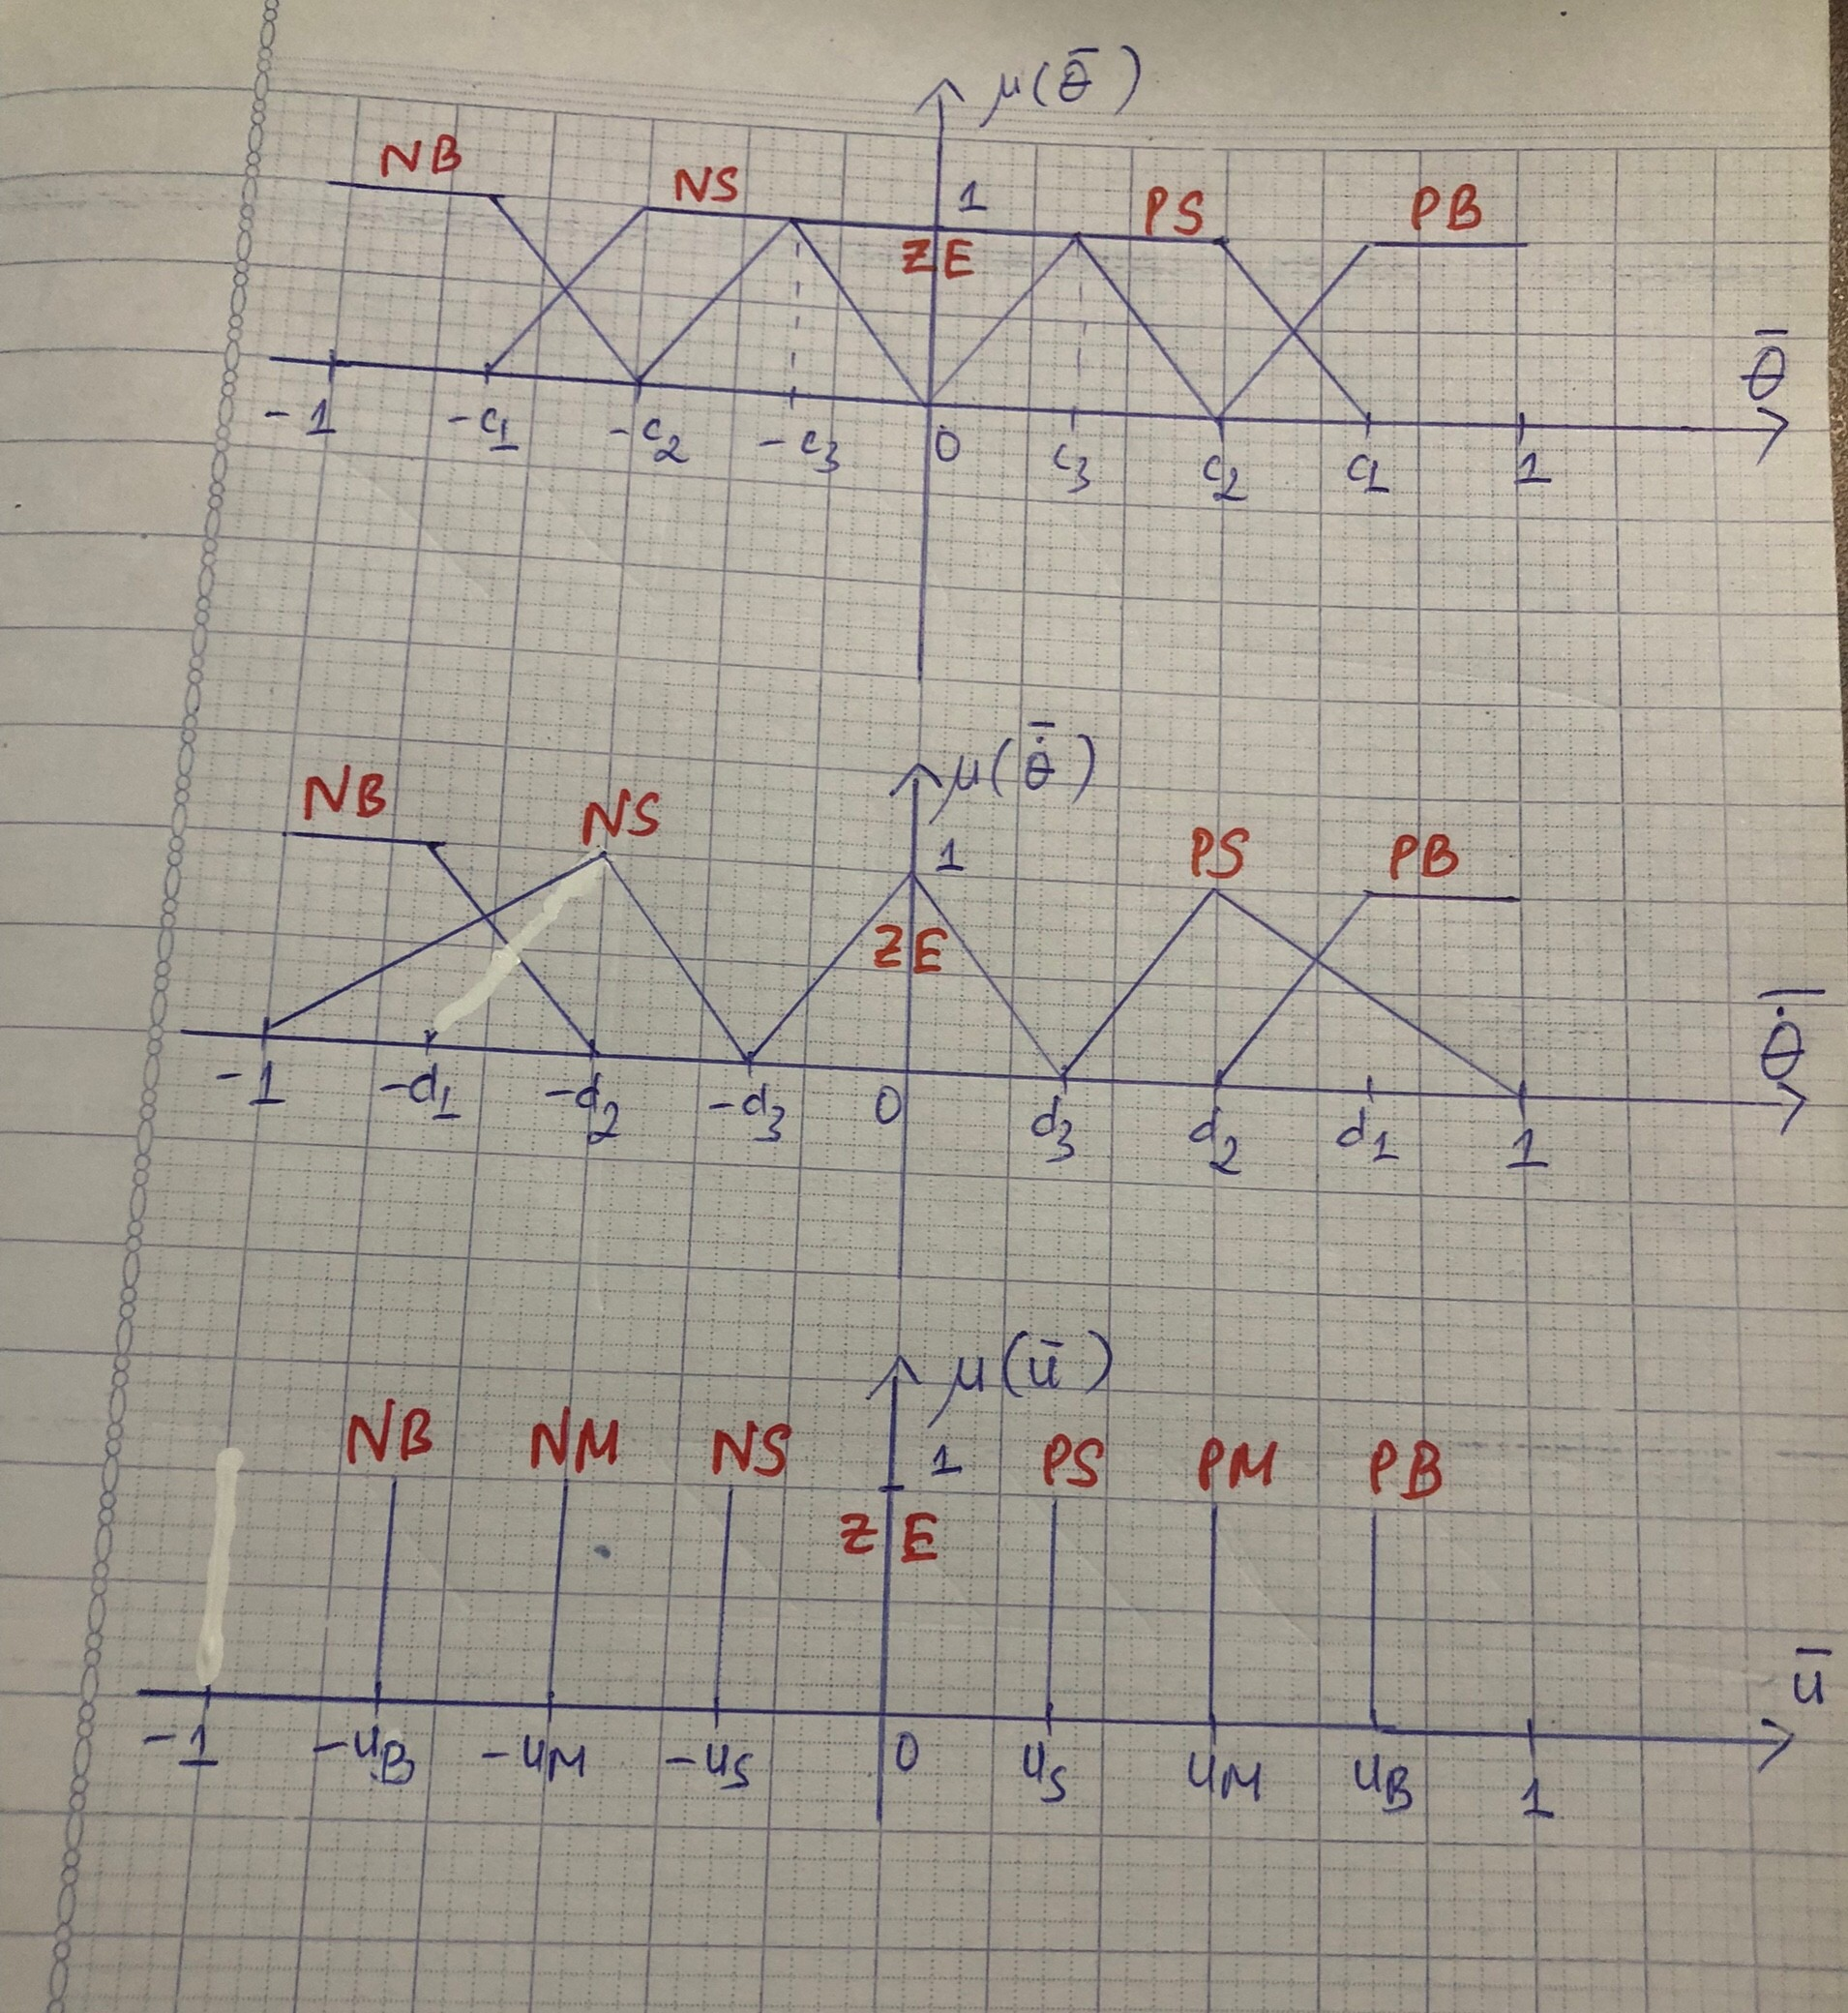 μ(θ̄)
NB NS 1 PS PB
ZE
θ̄
-1 -c₁ -c₂ -c₃ 0 c₃ c₂ c₁ 1
μ(θ̇̄)
NB NS 1 PS PB
ZE
θ̇̄
-1 -d₁ -d₂ -d₃ 0 d₃ d₂ d₁ 1
μ(ū)
NB NM NS 1 PS PM PB
ZE
ū
-1 -u_B -u_M -u_S 0 u_S u_M u_B 1